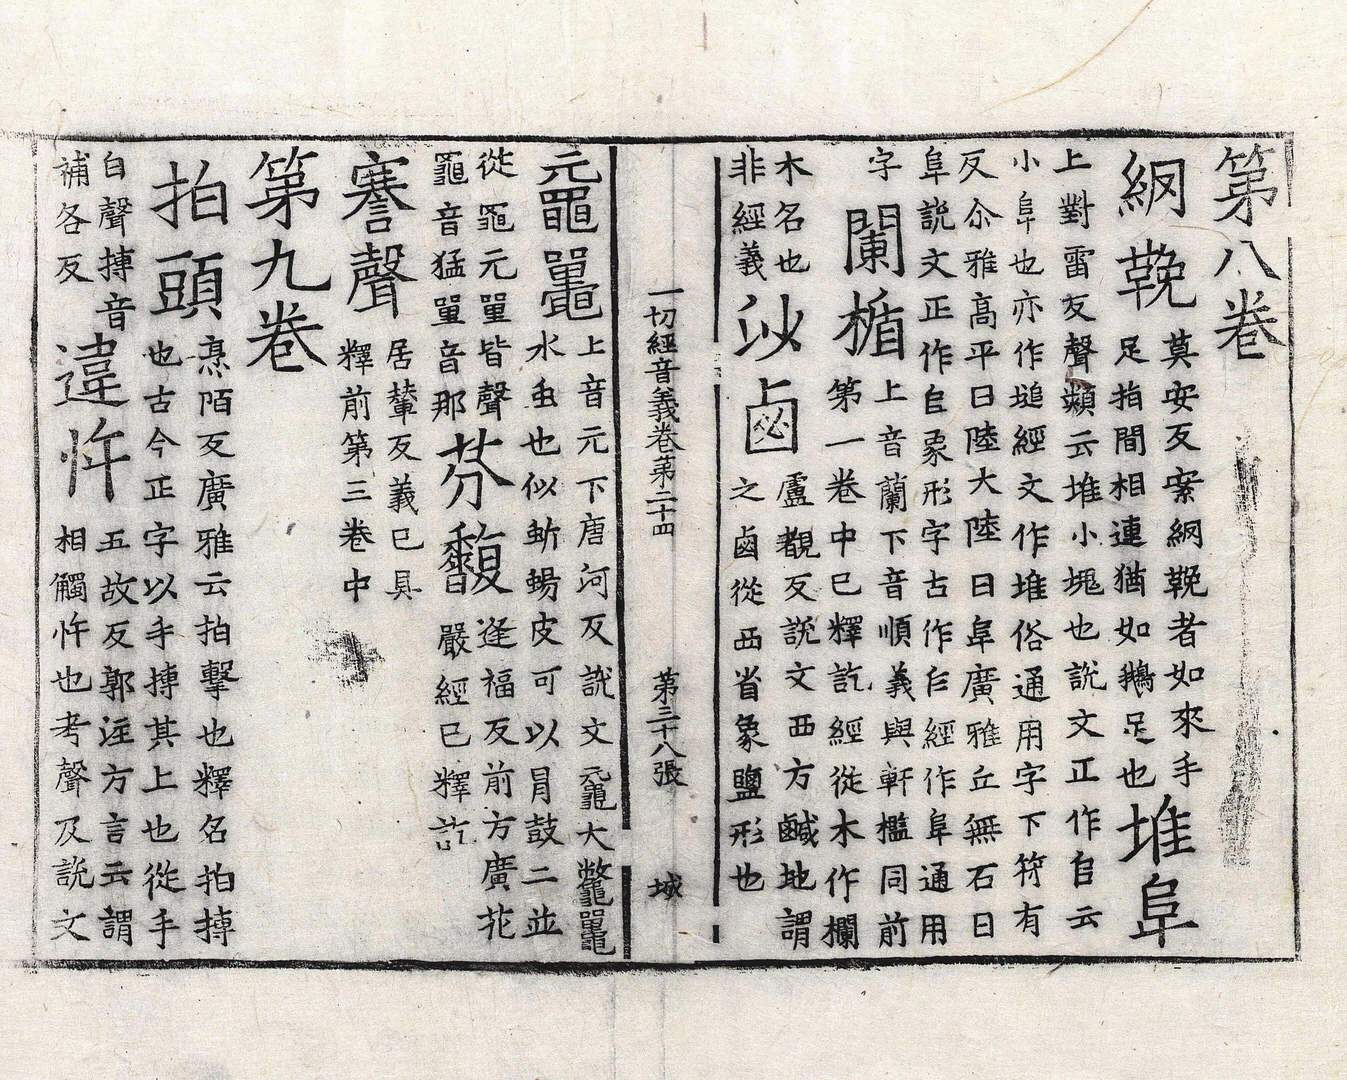 第八卷
網鞔
莫安反案網鞔者如來手
足指間相連猶如鵝足也
堆阜
上對雷反聲類云堆小塊也說文正作𠂤云
小阜也亦作塠經文作堆俗通用字下符有
反尒雅高平曰陸大陸曰阜廣雅丘無石曰
阜說文正作𨸏象形字古作𠂤經作阜通用
字
闌楯
上音蘭下音順義與軒檻同前
第一卷中已釋訖經從木作欄
木名也
非經義
沙鹵
盧覩反說文西方鹹地謂
之鹵從西省象鹽形也
一切經音義卷第二十四 第三十八張 城
黿鼉
上音元下唐河反說文黿大鼈鼉
水虫也似蜥蜴皮可以冐鼓二並
從黽元單皆聲
黽音猛單音那
芬馥
逢福反前方廣花
嚴經已釋訖
謇聲
居輦反義已具
釋前第三卷中
第九卷
拍頭
烹陌反廣雅云拍擊也釋名拍搏
也古今正字以手搏其上也從手
白聲搏音
補各反
違忤
五故反郭注方言云謂
相觸忤也考聲及說文